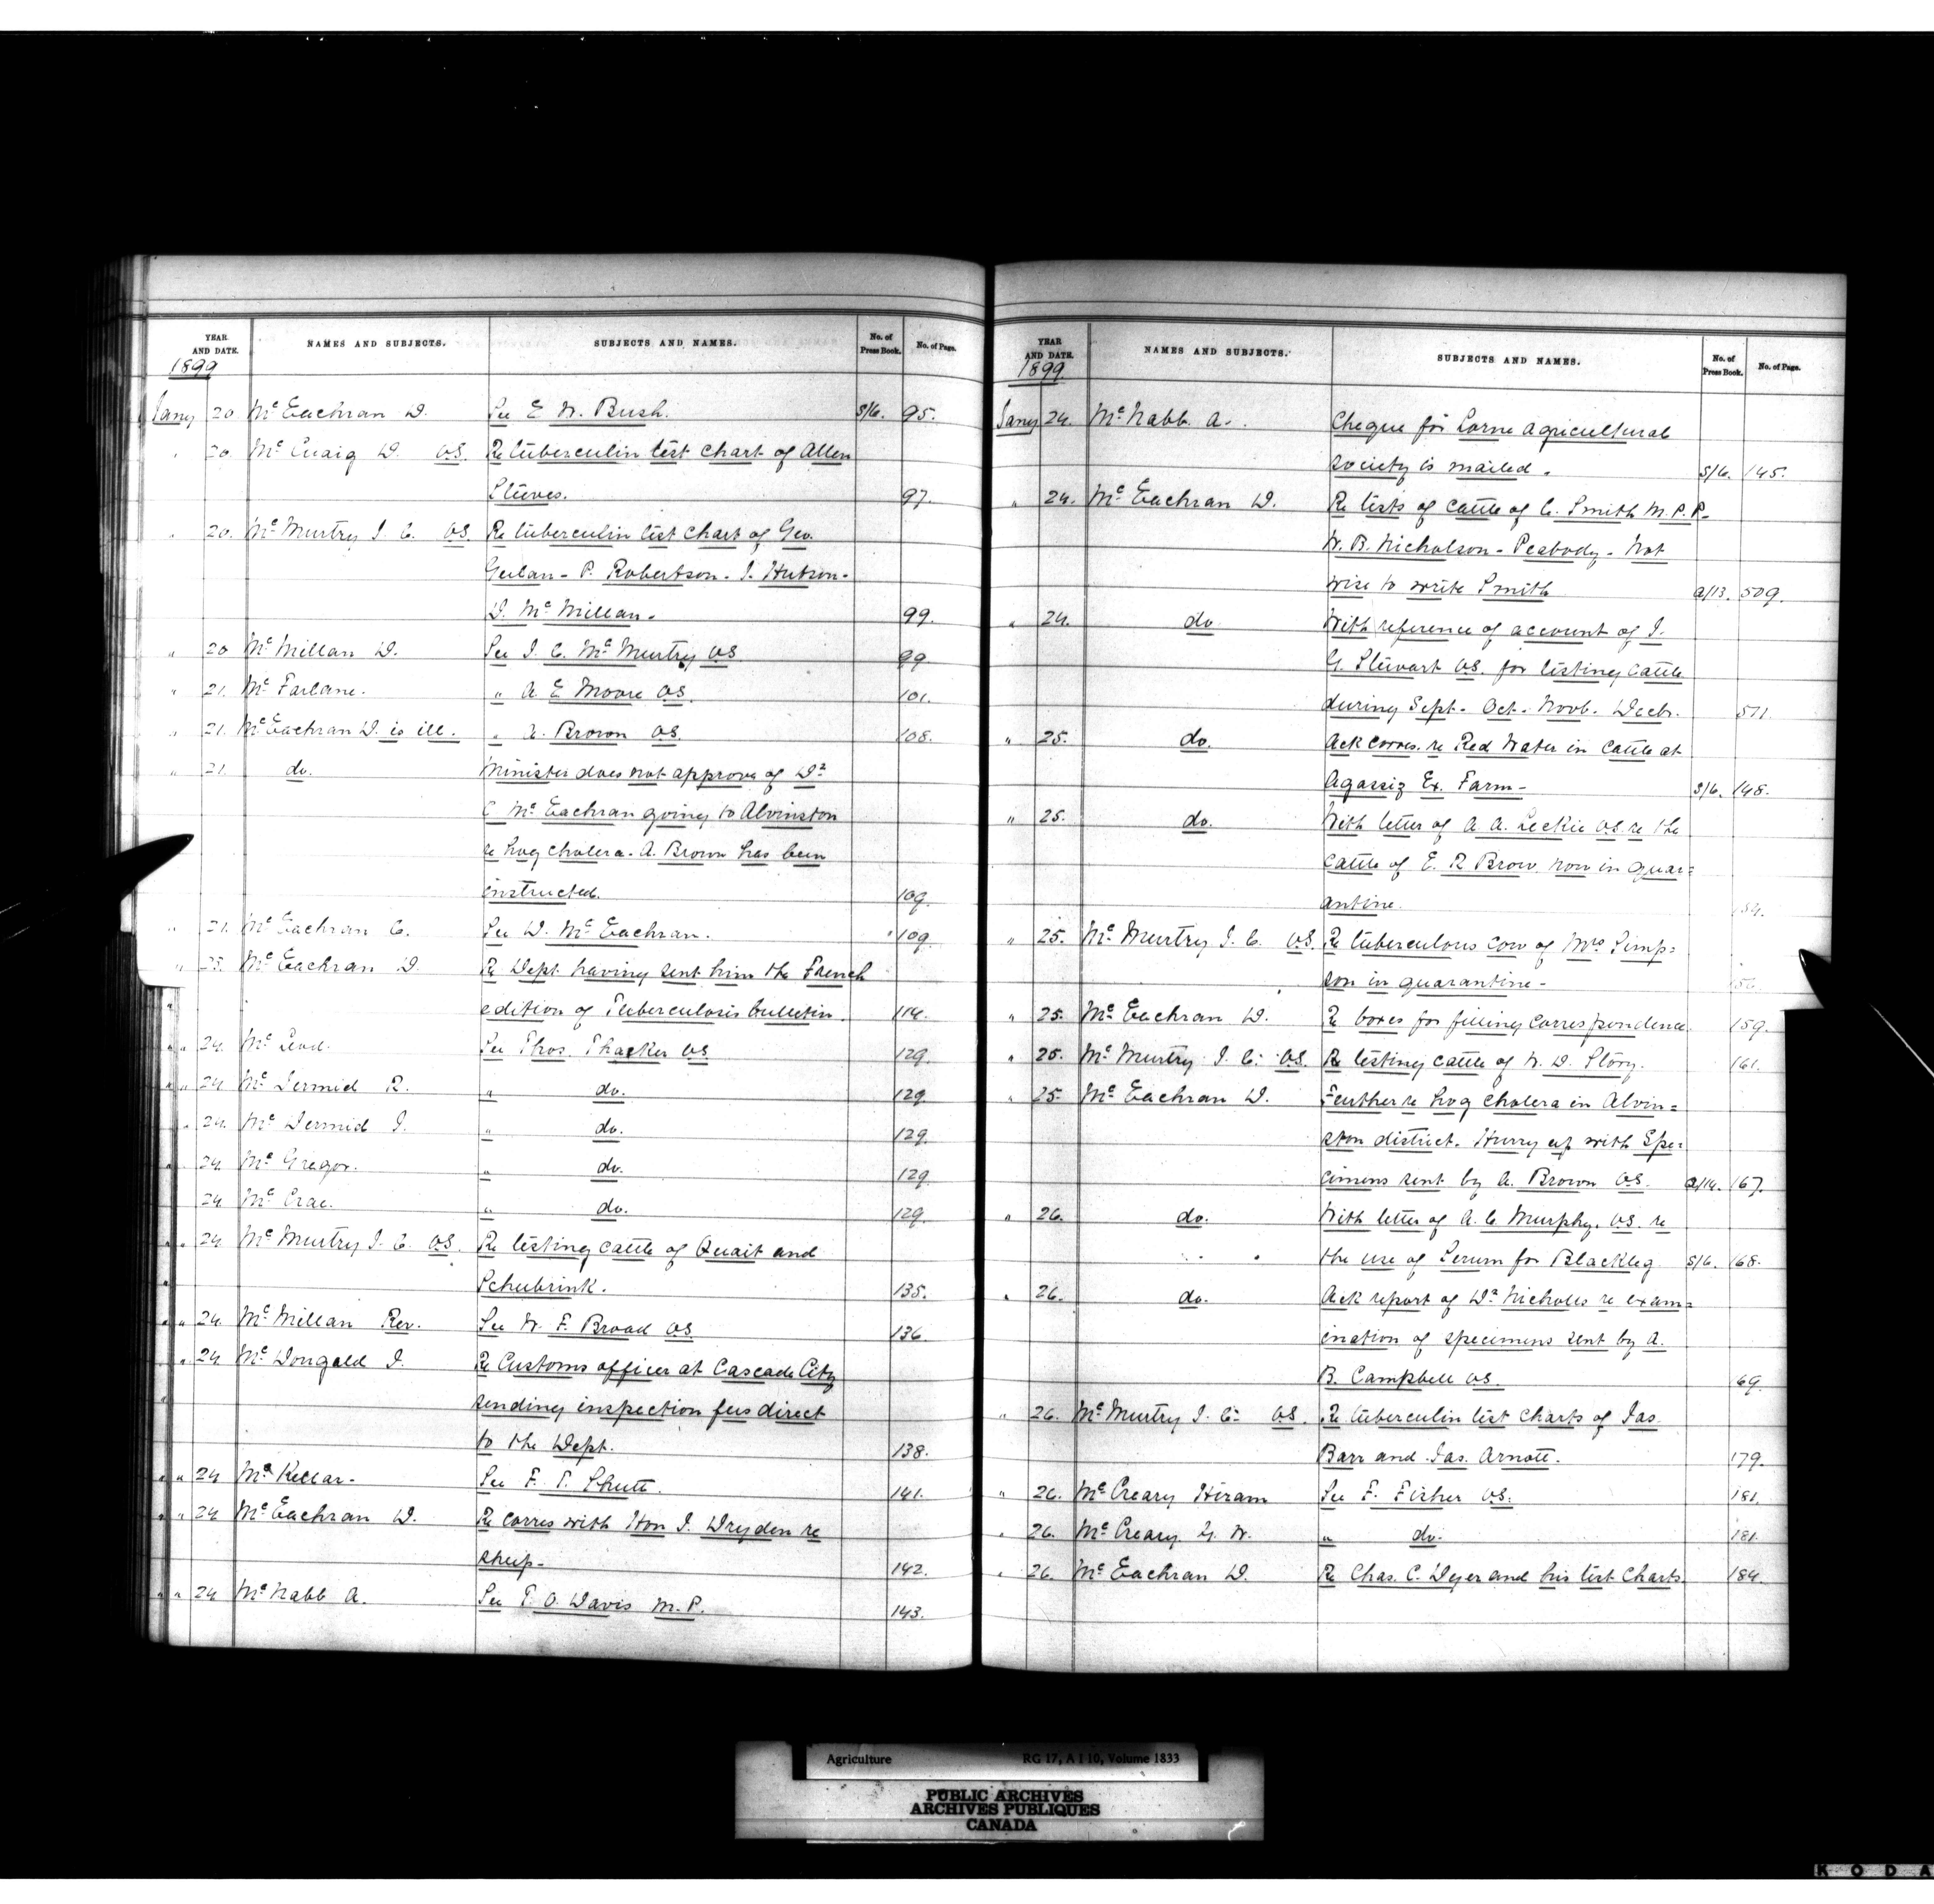 YEAR AND DATE. NAMES AND SUBJECTS. SUBJECTS AND NAMES. No. of Press Book. No. of Page.
1899
Jany 20 McEachran D. See E W. Bush. S/6. 95.
" 20 McCuaig D. VS. Re tuberculin test chart of Allen
Steeves. 97.
" 20. McMurtry J. C. VS. Re tuberculin test chart of Geo.
P. Robertson - J. Hutson -
D. McMillan - 99.
" 20 McMillan D. See J. C. McMurtry VS 99
" 21. McFarlane. " A E Moore VS. 101.
" 21. McEachran D. is ill. " A. Brown VS. 108.
" 21. do. Minister does not approve of Dr
C McEachran going to Alvinston
re hog cholera. A. Brown has been
instructed. 109.
" 21. McEachran C. See D. McEachran. 109.
" 23. McEachran D. Re Dept having sent him the French
edition of Tuberculosis bulletin. 114.
" 24. McLeod. See Thos. Thacker VS 129.
" " 24. McDermid R. " do. 129.
" 24. McDermid J. " do. 129.
" 24. McGregor. " do. 129.
24 McCrae. " do. 129.
" " 24 McMurtry J. C. VS. Re testing cattle of Quait and
Schubrink. 135.
" " 24. McMillan Rev. See W. F. Broad VS 136.
" 24 McDougald J. Re Customs officer at Cascade City
sending inspection fees direct
to the Dept. 138.
" " 24 McKellar - See F. T. Shutt. 141.
" " 24 McEachran D. Re corres with Hon J. Dryden re
sheep - 142.
" " 24 McNabb A. See T. O. Davis M.P. 143.
YEAR AND DATE. NAMES AND SUBJECTS. SUBJECTS AND NAMES. No. of Press Book. No. of Page.
1899.
Jany 24. McNabb A. Cheque for Lorne Agricultural
society is mailed. S/6. 145.
" 24. McEachran D. Re tests of cattle of C. Smith M.P.P.
W. B. Nicholson - Peabody - Not
wise to write Smith a/13. 509.
" 24. do. With reference of account of J.
G. Stewart VS. for testing cattle
during Sept - Oct - Novb. Decbr. 511.
" 25. do. Ack corres. re Red Water in cattle at
Agassiz Ex. Farm - S/6. 148.
" 25. do. With letter of A A. Leckie VS. re the
cattle of E. R Brow now in quar=
antine.
" 25. McMurtry J. C. VS. Re tuberculous cow of Mrs Simp=
son in quarantine -
" 25. McEachran D. Re boxes for filling correspondence 159.
" 25. McMurtry J. C. VS. Re testing cattle of W. D. Story. 161.
" 25. McEachran D. Further re hog cholera in Alvin=
ston district. Hurry up with Spe=
cimens sent by A. Brown VS. a/14. 167.
" 26. do. With letter of A. C Murphy. VS. re
the use of Serum for Blackleg S/6. 168.
" 26. do. Ack report of Dr Nicholls re exam=
ination of specimens sent by A.
B. Campbell VS. 69.
" 26. McMurtry J. C. VS. Re tuberculin test charts of Jas.
Barr and Jas. Arnott. 179.
" 26. McCreary Hiram See F. Fisher VS. 181.
" 26. McCreary G. W. " do. 181.
" 26. McEachran D. Re Chas. C. Dyer and his test charts. 184.
Agriculture RG 17, A I 10, Volume 1833
PUBLIC ARCHIVES
ARCHIVES PUBLIQUES
CANADA
KODA